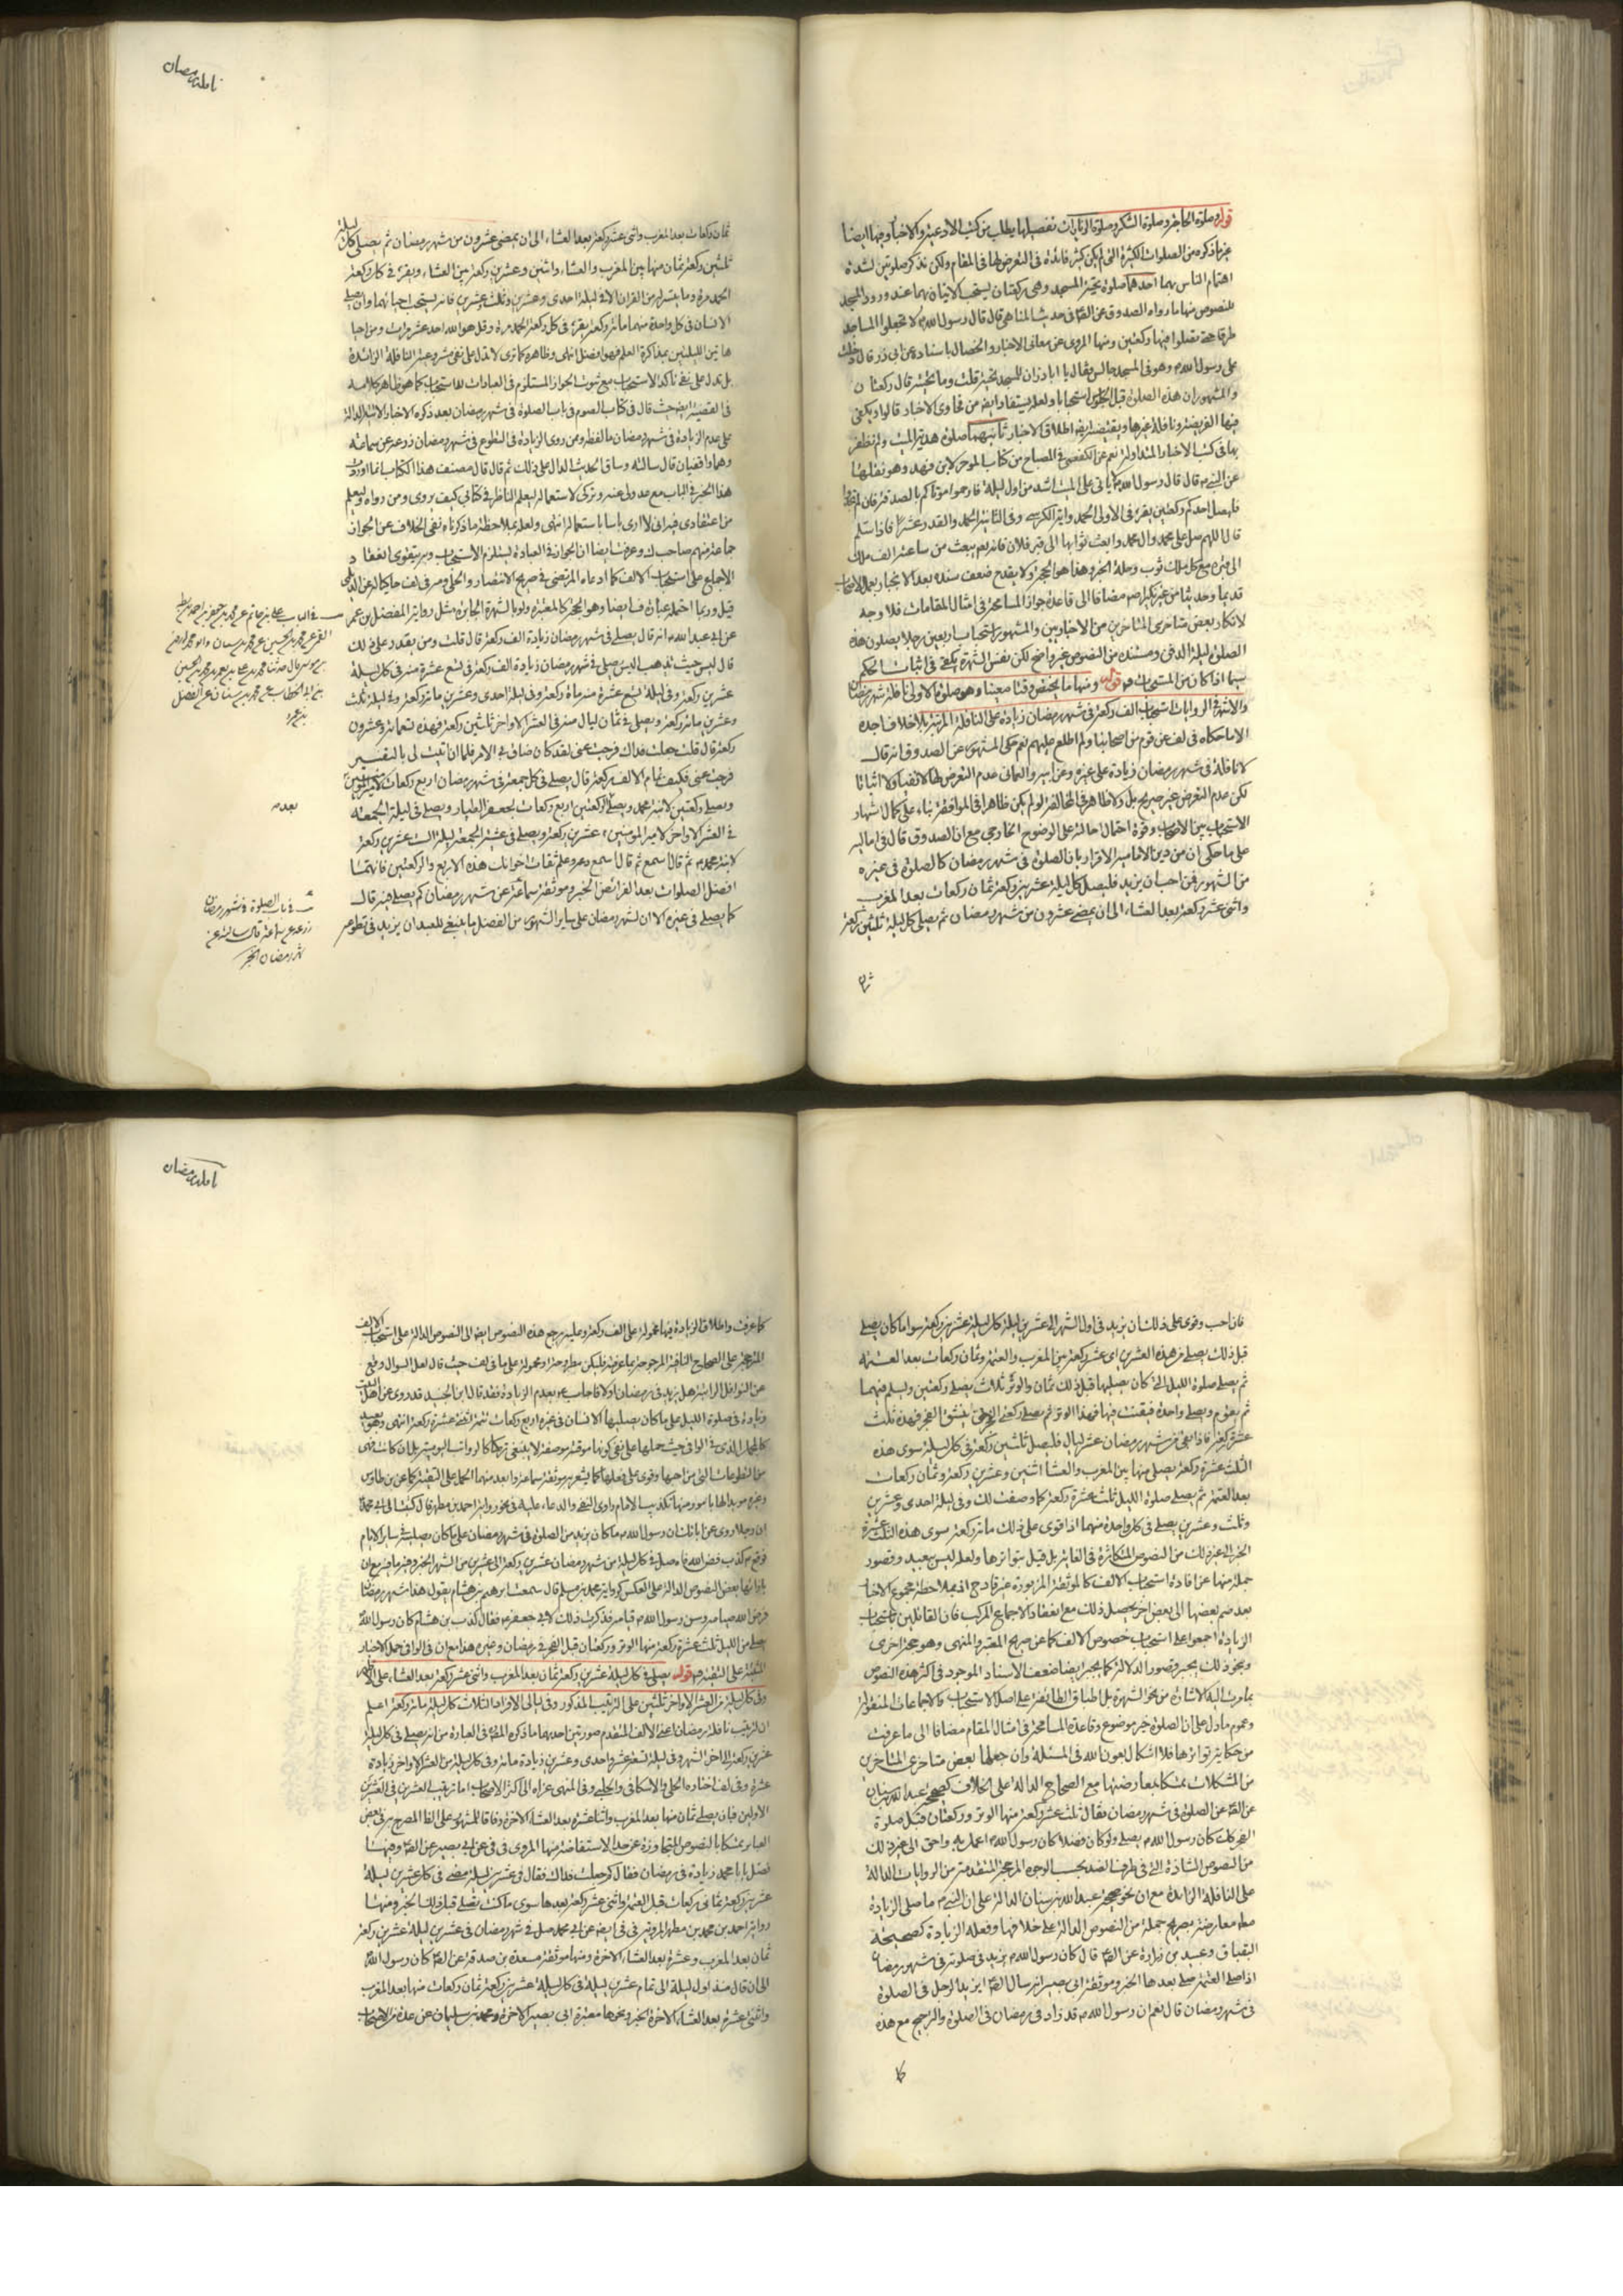 قوله وصلوة الحاجة وصلوة الشكر وصلوة الزيارات تفصيلها يطلب من كتب الادعية والاخبار وجها ايضا
غير ما ذكره من الصلوات الكثيرة التى لم يكن كثير فائدة فى التعرض لها فى المقام ولكن نذكر صلوتين لشدة
اهتمام الناس بهما احدهما صلوة تحية المسجد وهى ركعتان يستحب الاتيان بهما عند ورود المسجد
للنصوص منها ما رواه الصدوق عن الصم فى حديث المناهى قال قال رسول الله لا تجعلوا المساجد
طرقا حتى تصلوا فيها ركعتين ومنها المروى عن معانى الاخبار والخصال باسناده عن ابى ذر قال دخلت
على رسول الله وهو فى المسجد جالس فقال يا ابا ذر ان للمسجد تحية قلت وما تحيته قال ركعتان
والمشهور ان هذه الصلوة قبل الجلوس استحبابا ولعله يستفاد ايضا من فحاوى الاخبار قالوا ويكفى
فيها الفريضة ونافلة غيرها ويقتضيه ايضا اطلاق الاخبار ثانيهما صلوة هدية الميت ولم نظفر
بها فى كتب الاخبار المتداولة نعم عن الكفعمى فى المصباح من كتاب الموجز لابن فهد وهو نقلها
عن النبى قال قال رسول الله لا ياتى على الميت اشد من اول ليلة فارحموا موتاكم بالصدقة فان لم تجدوا
فليصل احدكم ركعتين يقرء فى الاولى الحمد واية الكرسى وفى الثانية الحمد والقدر عشرا فاذا سلم
قال اللهم صل على محمد وال محمد وابعث ثوابها الى قبر فلان فانه يعم يبعث من ساعته الف ملك
الى قبره مع كل ملك ثوب وحلة الخبر وهذا هو الحجة ولا يقدح ضعف سنده بعد الانجبار بعمل الاصحاب
قديما وحديثا من غير نكير اضم مضافا الى قاعدة جواز المسامحة فى امثال المقامات فلا وجه
لانكار بعض متاخرى المتاخرين من الاخباريين والمشهور استحباب اربعين رجلا يصلون هذه
الصلوة ليلة الدفن ومستنده من النصوص غير واضح لكن نفس الشهرة يكفى فى اثبات الحكم
سيما اذا كان من المستحبات قوله ومنها ما يختص وقتا معينا وهو صلوة الاولى نافلة شهر رمضان
والاشهر فى الروايات استحباب الف ركعة فى شهر رمضان زيادة على النافلة المرتبة بلا خلاف اجده
الا ما حكاه فى لف عن قوم من اصحابنا ولم اطلع عليهم نعم حكى المشهور عن الصدوق انه قال
لا نافلة فى شهر رمضان زيادة على غيره وعن ابيه والعمانى عدم التعرض لها لا نفيا ولا اثباتا
لكن عدم التعرض غير صريح بل ولا ظاهر فى المخالفة لو لم يكن ظاهرا فى الموافقة بناء على كمال اشتهار
الاستحباب بين الاصحاب وقوة احتمال احالته على الوضوح الخارجى مع ان الصدوق قال فى اماليه
على ما حكى ان من دين الامامية الاقرار بان الصلوة فى شهر رمضان كالصلوة فى غيره
من الشهور فمن احب ان يزيد فليصل كل ليلة عشرين ركعة ثمان ركعات بعد المغرب
واثنى عشر ركعة بعد العشاء الى ان يمضى عشرون من شهر رمضان ثم يصلى كل ليلة ثلثين ركعة
نافلة رمضان
ثمان ركعات بعد المغرب واثنى عشر ركعة بعد العشاء الى ان يمضى عشرون من شهر رمضان ثم يصلى كل ليلة
ثلثين ركعة ثمان منها بين المغرب والعشاء واثنين وعشرين ركعة بين العشاء ويقرء فى كل ركعة
الحمد مرة وما يتيسر له من القران الا فى ليلة احدى وعشرين وثلث عشرين فانه يستحب احيائهما وان يصلى
الانسان فى كل واحدة منهما مائة ركعة يقرء فى كل ركعة الحمد مرة وقل هو الله احد عشر مرات ومن احيا
هاتين الليلتين بمذاكرة العلم فهو افضل انتهى وظاهره كما ترى لا تدل على نفى مشروعية النافلة الزائدة
بل تدل على نفى تاكد الاستحباب مع ثبوت الجواز المستلزم فى العبادات للاستحباب كما هو ظاهر كلامه
فى الفقيه ايضا حيث قال فى كتاب الصوم فى باب الصلوة فى شهر رمضان بعد ذكره الاخبار الاتية الدالة
على عدم الزيادة فى شهر رمضان ما لفظه ومن روى الزيادة فى التطوع فى شهر رمضان زرعة عن سماعة
وهما واقفيان قال سالته وساق الحديث الدال على ذلك ثم قال قال مصنف هذا الكتاب انما اوردت
هذا الخبر فى الباب مع عدولى عنه وتركى لاستعماله ليعلم الناظر فى كتابى كيف يروى ومن رواه وليعلم
من اعتقادى فيه انى لا ارى باسا باستعماله انتهى ولعله بملاحظة ما ذكرناه نفى الخلاف عن الجواز
جماعة منهم صاحب ك وعرفت ايضا ان الجواز فى العبادة يستلزم الاستحباب وبه يتقوى انعقاد
الاجماع على استحباب الالف كما ادعاه المرتضى فى صريح الانتصار والحلى ومر فى لف حاكيا له عن الديلمى
قيل وربما احتمله عبارة ف ايضا وهو الحجة كالمعتبرة ولو بالشهرة الجابرة مثل رواية المفضل بن عمر
عن ابى عبد الله انه قال يصلى فى شهر رمضان زيادة الف ركعة قال قلت ومن يقدر على ذلك
قال ليس حيث تذهب اليس يصلى فى شهر رمضان زيادة الف ركعة فى تسع عشرة منه فى كل ليلة
عشرين ركعة وفى ليلة تسع عشرة منه مائة ركعة وفى ليلة احدى وعشرين مائة ركعة وفى ليلة ثلث
وعشرين مائة ركعة ويصلى فى ثمان ليال منه فى العشر الاواخر ثلثين ركعة فهذه تسعمائة وعشرون
ركعة قال قلت جعلت فداك فرجت عنى لقد كان ضاق بى الامر فلما ان اتيت لى بالتفسير
فرجت عنى فكيف تمام الالف ركعة قال يصلى فى كل جمعة فى شهر رمضان اربع ركعات لامير المؤمنين
ويصلى ركعتين لابنة محمد ويصلى بعد الركعتين اربع ركعات لجعفر الطيار ويصلى فى ليلة الجمعة
فى العشر الاواخر لامير المؤمنين عشرين ركعة ويصلى فى عشية الجمعة ليلة السبت عشرين ركعة
لابنة محمد ثم قال اسمع وعه وعلم ثقات اخوانك هذه الاربع والركعتين فانهما
افضل الصلوات بعد الفرائض الخبر وموثقة سماعة عن شهر رمضان كم يصلى فيه قال
كما يصلى فى غيره الا ان لشهر رمضان على ساير الشهور من الفضل ما ينبغى للعبد ان يزيد فى تطوعه
بعد
فى باب الصلوة فى شهر رمضان
زرعة عن سماعة قال سالته عن
شهر رمضان الخبر
فان احب وقوى على ذلك ان يزيد فى اول الشهر الى عشرين ليلة كل ليلة عشرين ركعة سوا ما كان يصلى
قبل ذلك يصلى من هذه العشرين اثنى عشر ركعة بين المغرب والعتمة وثمان ركعات بعد العتمة
ثم يصلى صلوة الليل التى كان يصليها قبل ذلك ثمان والوتر ثلاث يصلى ركعتين ويسلم فيهما
ثم يقوم ويصلى واحدة فيقنت فيها فهذا الوتر ثم يصلى ركعتى الفجر حتى ينشق الفجر فهذه ثلث
عشرة ركعة فاذا بقى من شهر رمضان عشر ليال فليصل ثلثين ركعة فى كل ليلة سوى هذه
الثلث عشرة ركعة يصلى منها بين المغرب والعشا اثنين وعشرين ركعة وثمان ركعات
بعد العتمة ثم يصلى صلوة الليل ثلث عشرة ركعة كما وصفت لك وفى ليلة احدى وعشرين
وثلث وعشرين يصلى فى كل واحدة منهما اذا قوى على ذلك مائة ركعة سوى هذه الثلث عشرة
الخبر الى غير ذلك من النصوص المتكاثرة فى الغاية بل قيل بتواترها ولعله ليس ببعيد وقصور
جملة منها عن افادة استحباب الالف كالموثقة المزبورة غير قادح اذ بملاحظة مجموع الاخبار
بعد ضم بعضها الى بعض اخر يحصل ذلك مع انعقاد الاجماع المركب فان القائلين باستحباب
الزيادة اجمعوا على استحباب خصوص الالف كما عن صريح المعتبر والمنتهى وهو حجة اخرى
وبنحو ذلك يجبر قصور الدلالة كما يجبر ايضا ضعف الاسناد الموجود فى اكثر هذه النصوص
بما مرت اليه الاشارة من نحو الشهرة بل اطباق الطائفة على اصل الاستحباب والاجماعات المنقولة
وعموم ما دل على ان الصلوة خير موضوع وقاعدة المسامحة فى امثال المقام مضافا الى ما عرفت
من حكاية تواترها فلا اشكال بعون الله فى المسئلة وان جعلها بعض متاخرى المتاخرين
من المشكلات تمسكا بمعارضتها مع الصحاح الدالة على الخلاف كصحيح عبد الله بن سنان
عن الصم عن الصلوة فى شهر رمضان فقال ثلث عشر ركعة منها الوتر وركعتان قبل صلوة
الفجر كذلك كان رسول الله يصلى ولو كان فضلا كان رسول الله اعمل به واحق الى غير ذلك
من النصوص الشاذة التى فى طرف الضد بحسب الوجوه المرجحة المتقدمة من الروايات الدالة
على النافلة الزائدة مع ان نحو صحيح عبد الله بن سنان الدالة على ان النبى ما صلى الزيادة
معارضة بصريح جملة من النصوص الدالة على خلافها وفعله الزيادة كصحيحة
البقباق وعبيد بن زرارة عن الصم قال كان رسول الله يزيد فى صلوته فى شهر رمضان
اذا صلى العتمة صلى بعدها الخبر وموثقة ابى بصير انه سال الصم ايزيد الرجل فى الصلوة
فى شهر رمضان قال نعم ان رسول الله قد زاد فى رمضان فى الصلوة والترجيح مع هذه
نافلة رمضان
كما عرفت واطلاق الزيادة فيها محمولة على الف ركعة وعليه يرجع هذه النصوص ايضا الى النصوص الدالة على استحباب الالف
المرجحة على الصحاح النافية المرجوحة بما عرفته فليكن مطروحة او محمولة على ما فى لف حيث قال لعل السوال وقع
عن النوافل الراتبة هل يزيد فى رمضان او لا فاجاب بعدم الزيادة فقد قال ابن الجنيد قد روى عن اهل البيت
زيادة فى صلوة الليل على ما كان يصليها الانسان فى غيره اربع ركعات تتمة اثنتى عشرة ركعة انتهى وهو بعيد
كالحمل الذى فى الوافى حيث حملها على نفى كونها موقتة موصفة لا ينبغى تركها كالرواتب اليومية بل ان كانت فهى
من التطوعات التى من احبها وقوى على فعلها كما يشعر به موثقة سماعة وابعد منهما الحمل على التقية كما عن بن طاوس
وغيره مويدا لها بامور منها تكذيب الامام راوى النفى والدعاء عليه فى نحو رواية احمد بن مطهر قال كتبت الى ابى محمد
ان رجلا روى عن ابائك ان رسول الله ما كان يزيد من الصلوة فى شهر رمضان على ما كان يصليه فى ساير الايام
فوقع كذب فض الله فاه صل فى كل ليلة من شهر رمضان عشرين ركعة الى عشرين من الشهر الخبر وفيه ما فيه مع ان
بازائها بعض النصوص الدالة على العكس كرواية محمد بن مسلم قال سمعت ابرهيم بن هشام يقول هذا شهر رمضان
فرض الله صيامه وسن رسول الله قيامه فذكرت ذلك لابى جعفر فقال كذب بن هشام كان رسول الله
يصلى من الليل ثلث عشرة ركعة منها الوتر وركعتان قبل الفجر فى رمضان وغيره هذا مع ان فى الوافى حمل الاخبار
المثبتة على التقية قوله يصلى فى كل ليلة عشرين ركعة ثمان بعد المغرب واثنى عشر ركعة بعد العشاء على الاظهر
وفى كل ليلة من العشر الاواخر ثلثين على الترتيب المذكور وفى ليالى الافراد الثلاث كل ليلة مائة ركعة اعلم
ان لترتيب نافلة رمضان اعنى الالف المتقدم صورتين احديهما ما ذكره المصم فى العبارة من انه يصلى فى كل ليلة
عشرين ركعة الى اخر الشهر وفى ليلة تسع عشر واحدى وعشرين زيادة مائة وفى كل ليلة من العشر الاواخر زيادة
عشرة وفى لف اختاره الحلى والاسكافى والحلبى وفى المنتهى عزاه الى اكثر الاصحاب اما ترتيب العشرين فى العشرين
الاولين فبان يصلى ثمان منها بعد المغرب واثنا عشرة بعد العشاء الاخرة وفاقا للمشهور على الظا المصرح به فى بعض
العباير تمسكا بالنصوص المتجاوزة عن حد الاستفاضة منها المروى فى فى عن ابى بصير عن الصم وفيها
فصل يا با محمد زيادة فى رمضان فقال كم جعلت فداك فقال فى عشرين ليلة تمضى فى كل عشرين ليلة
عشرين ركعة ثمانى ركعات قبل العتمة واثنى عشر ركعة بعدها سوى ما كنت تصلى قبل ذلك الخبر ومنها
رواية احمد بن محمد بن مطهر المروية فى فى ايضا عن ابى محمد صل فى شهر رمضان فى عشرين ليلة عشرين ركعة
ثمان بعد المغرب وعشرة بعد العشاء الاخرة ومنها موثقة مسعدة بن صدقة عن الصم كان رسول الله
الى ان قال منذ اول ليلة الى تمام عشرين ليلة فى كل ليلة عشرين ركعة ثمان ركعات منها بعد المغرب
واثنتى عشرة بعد العشاء الاخرة الخبر ونحوها معتبرة ابى بصير الاخرة ومحمد بن سليمان عن عدة من الاصحاب